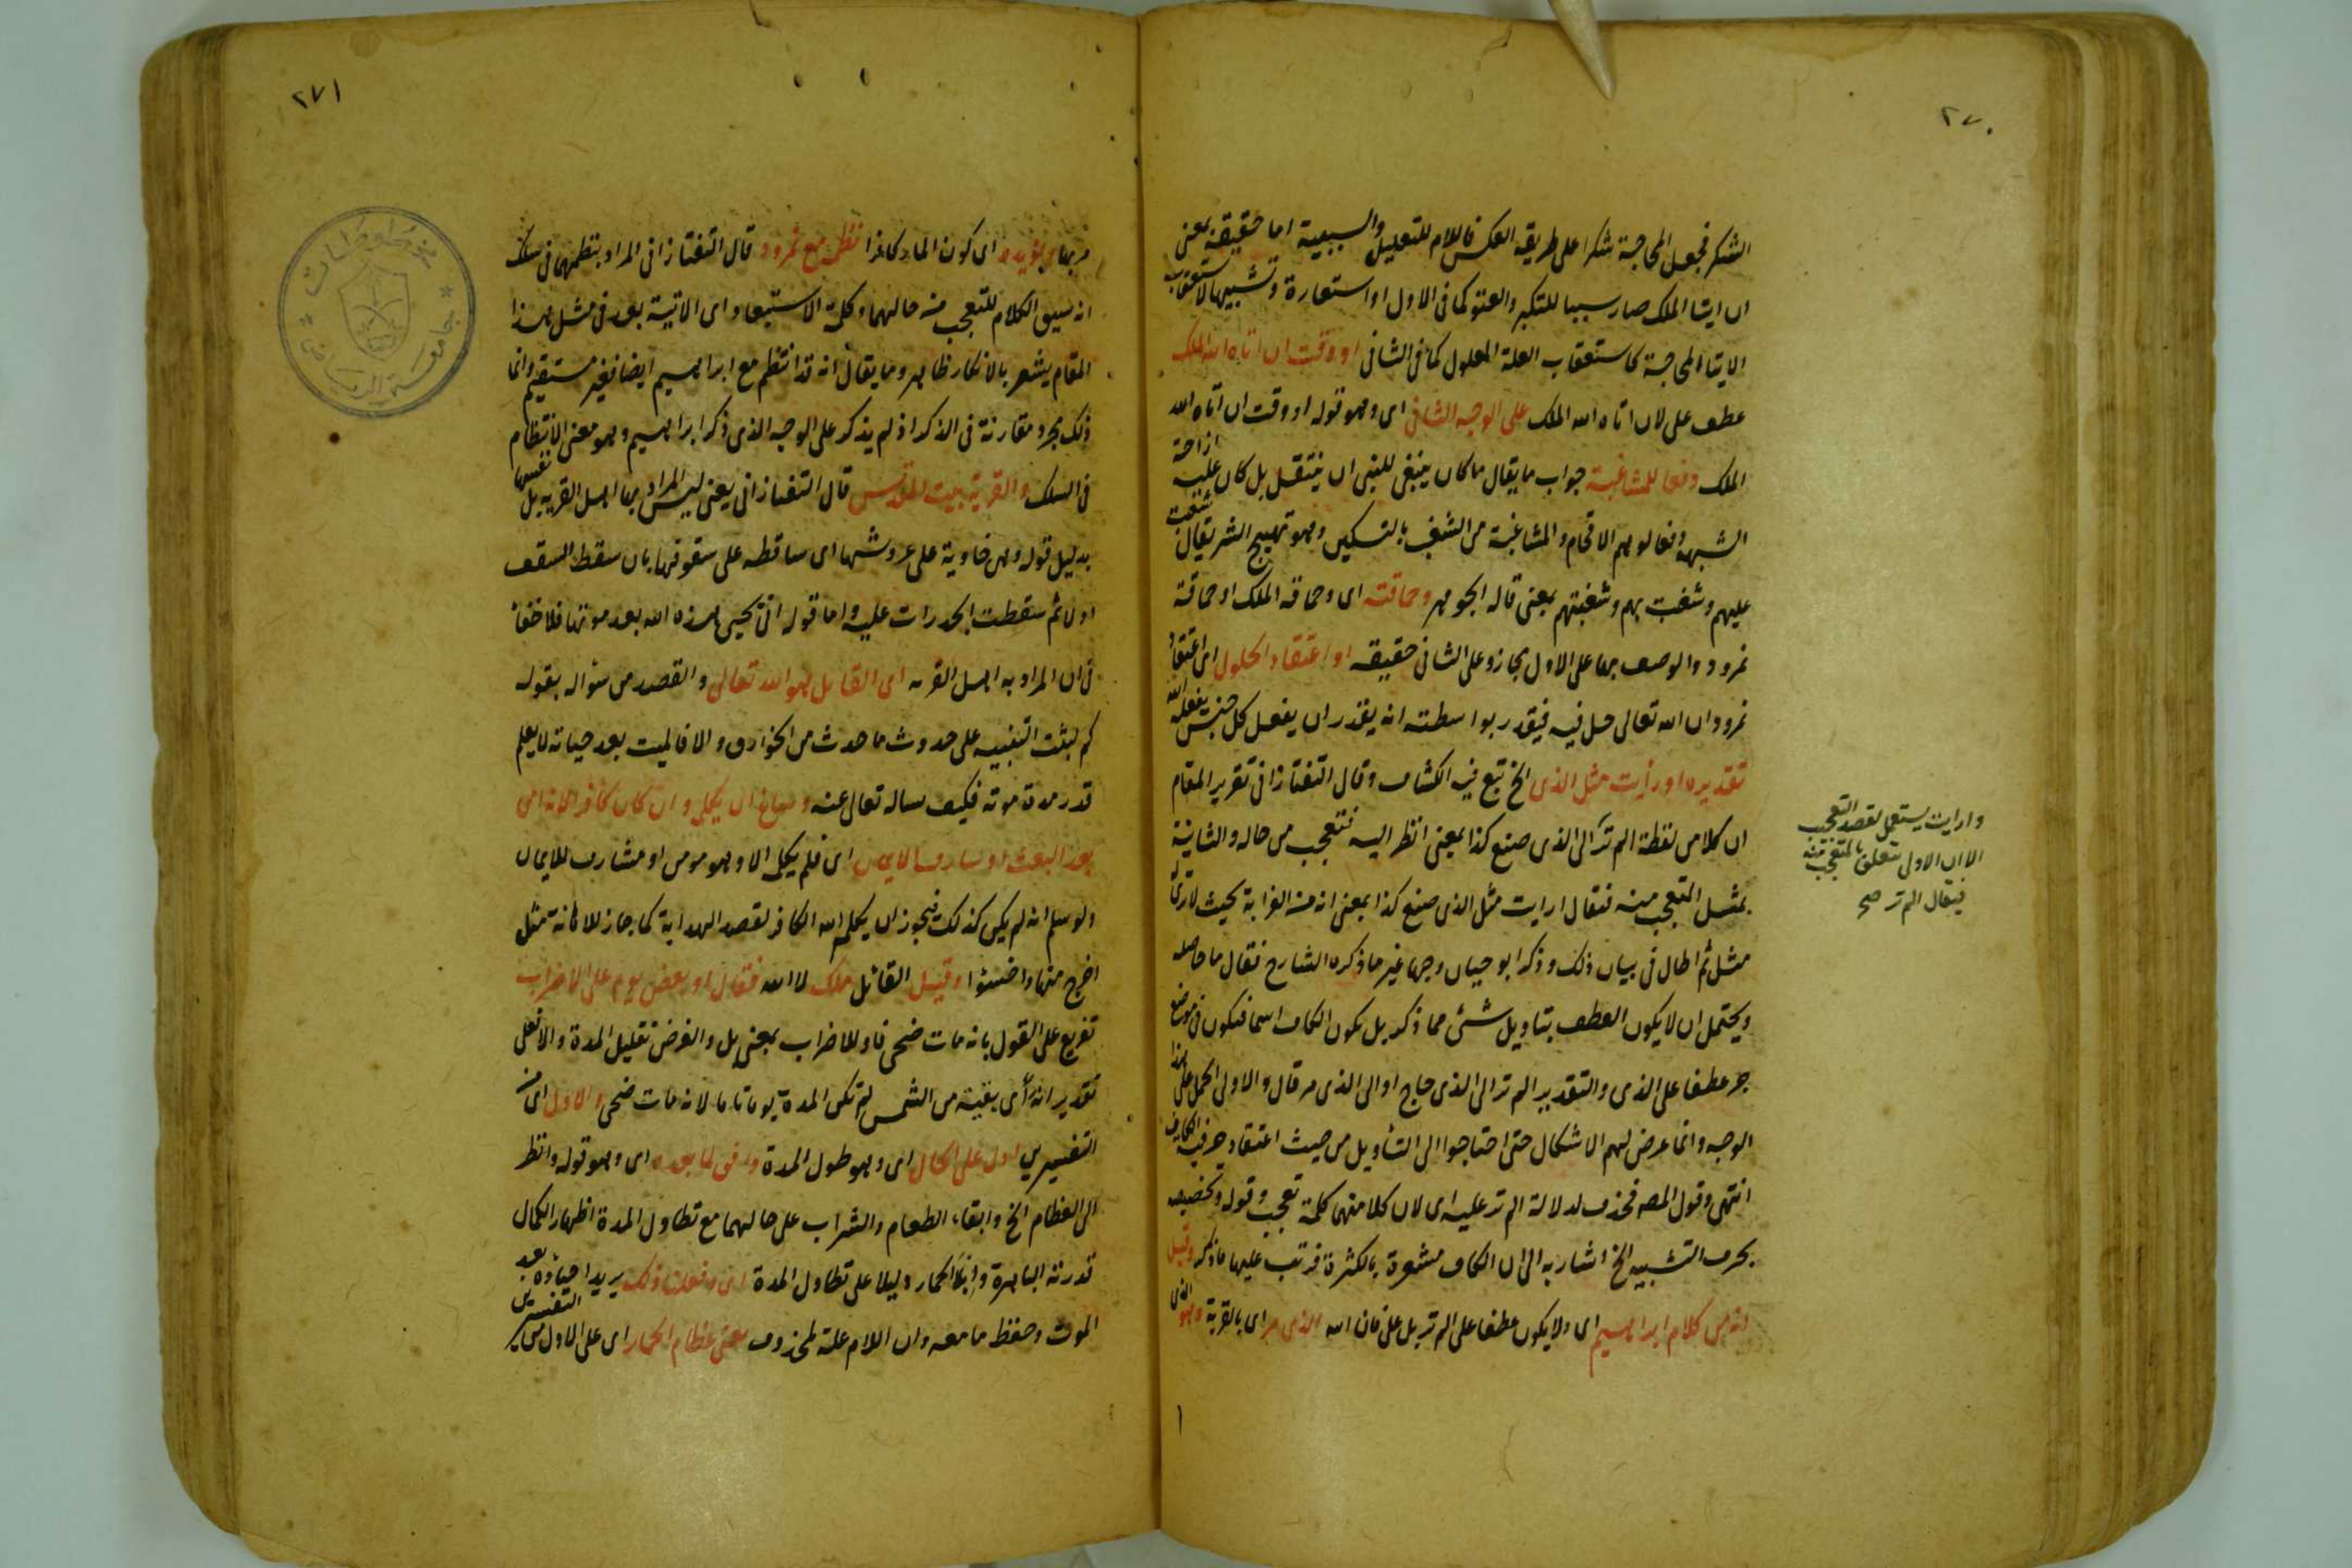 ٢٧٠
الشكر فجعل المحاجة شكرا على طريقه العكس فاللام للتعليل والسببية اما حقيقة بمعنى
ان ايتا الملك صار سببا للتكبر والعتو كما فى الاول او استعارة وتشبيها لاستعقاب
الايتا المحاجة كاستعقاب العلة المعلول كما فى الثانى او وقت ان اتاه الله الملك
عطف على لان اتاه الله الملك على الوجه الثانى اى وهو قوله او وقت ان اتاه الله
الملك دفعا للمشاغبة جواب ما يقال ما كان ينبغى للنبى ان ينتقل بل كان عليه ازاحة
الشبهة دفعا لوهم الافحام والمشاغبة من الشغب بالتسكين وهو تهييج الشر يقال شغبت
عليهم وشغبت بهم وشغبتهم بمعنى قاله الجوهر وحماقته اى وحماقة الملك او حماقة
نمرود والوصف بها على الاول مجاز وعلى الثانى حقيقه او اعتقاد الحلول اى اعتقاد
نمرود ان الله تعالى حل فيه فيقدر بواسطته انه يقدر ان يفعل كل جنس يفعله الله
تقديره او رأيت مثل الذى الخ تبع فيه الكشاف وقال التفتازانى تقرير المقام
ان كلا من لفظة الم تر الى الذى صنع كذا بمعنى انظر اليه فتعجب من حاله والثانية
بمثل التعجب منه فتقال ارايت مثل الذى صنع كذا بمعنى انه من الغرابة بحيث لا ترى له
مثل ثم اطال فى بيان ذلك وذكر ابو حيان وجها غير ما ذكره الشارح فقال ما حاصله
ويحتمل ان لا يكون العطف بتاويل شئ مما ذكر بل تكون الكاف اسما فتكون فى موضع
جر عطفا على الذى والتقدير الم تر الى الذى حاج او الى الذى مر قال والاولى الحمل على هذا
الوجه وانما عرض لهم الاشكال حتى احتاجوا الى التأويل من حيث اعتقاد حرفية الكاف
انتهى وقول المصه فحذف لدلالة الم تر عليه اى لان كلا منهما كلمة تعجب وقوله وتخصيصه
بحرف التشبيه الخ اشار به الى ان الكاف مشعرة بالكثرة فرتب عليها ما ذكر وقيل
انه من كلام ابراهيم اى ولا يكون عطفا على الم تر بل على فان الله الذى مر اى بالقرية وهو الذى
وارايت يستعمل لقصد التعجب
الا ان الاولى تتعلق بالمتعجب منه
فيقال الم تر صح
٢٧١
مر بها ويؤيده اى كون المار كافرا نظمه مع نمرود قال التفتازانى المراد بنظمهما فى سلك
انه سيق الكلام للتعجب من حالهما وكلمة الاستبعاد اى الاتية بعد فى مثل هذا
المقام يشعر بالانكار ظاهر وما يقال انه قد انتظم مع ابراهيم ايضا فغير مستقيم وانما
ذلك مجرد مقارنة فى الذكر اذ لم يذكر على الوجه الذى ذكر ابراهيم وهو معنى الانتظام
فى السلك والقرية بيت المقدس قال التفتازانى يعنى ليس المراد بها اهل القريه بل نفسها
بدليل قوله وهى خاوية على عروشها اى ساقطه على سقوفها بان سقط السقف
اولا ثم سقطت الجدرات عليه واما قوله انى يحيى هذه الله بعد موتها فلا خفا
فى ان المراد به اهل القريه اى القايل هو الله تعالى والقصد من سؤاله بقوله
كم لبثت التنبيه على حدوث ما حدث من الخوارق والا فالميت بعد حياته لا يعلم
قدر مدة موته فكيف يساله تعالى عنه وساغ ان يكلمه وان كان كافرا لانه امن
بعد البعث او شارف الايمان اى فلم يكلمه الا وهو مومن او مشارف للايمان
ولو سلم انه لم يكن كذلك فيجوز ان يكلم الله الكافر لقصد الهداية كما جاز للاهانة مثل
اخرج منها واخسئوا وقيل القائل ملك لا الله فتقال او بعض يوم على الاضراب
تفريع على القول بانه مات ضحى فاو للاضراب بمعنى بل والغرض تقليل المدة والا فعلى
تقدير انه رأى بقية من الشمس لم تكن المدة يوما تاما لانه مات ضحى والاول اى من
التفسيرين ادل على الحال اى وهو طول المدة وافق لما بعده اى وهو قوله وانظر
الى العظام الخ وابقاء الطعام والشراب على حالهما مع تطاول المدة اظهار الكمال
قدرته الباهرة وابقا الحمار دليلا على تطاول المدة اى وفعلنا ذلك يريد احياؤه بعد
الموت وحفظ ما معه وان اللام علة لمحذوف يعنى عظام الحمار اى على الاول من التفسيرين
مخطوطات * جامعة الرياض *